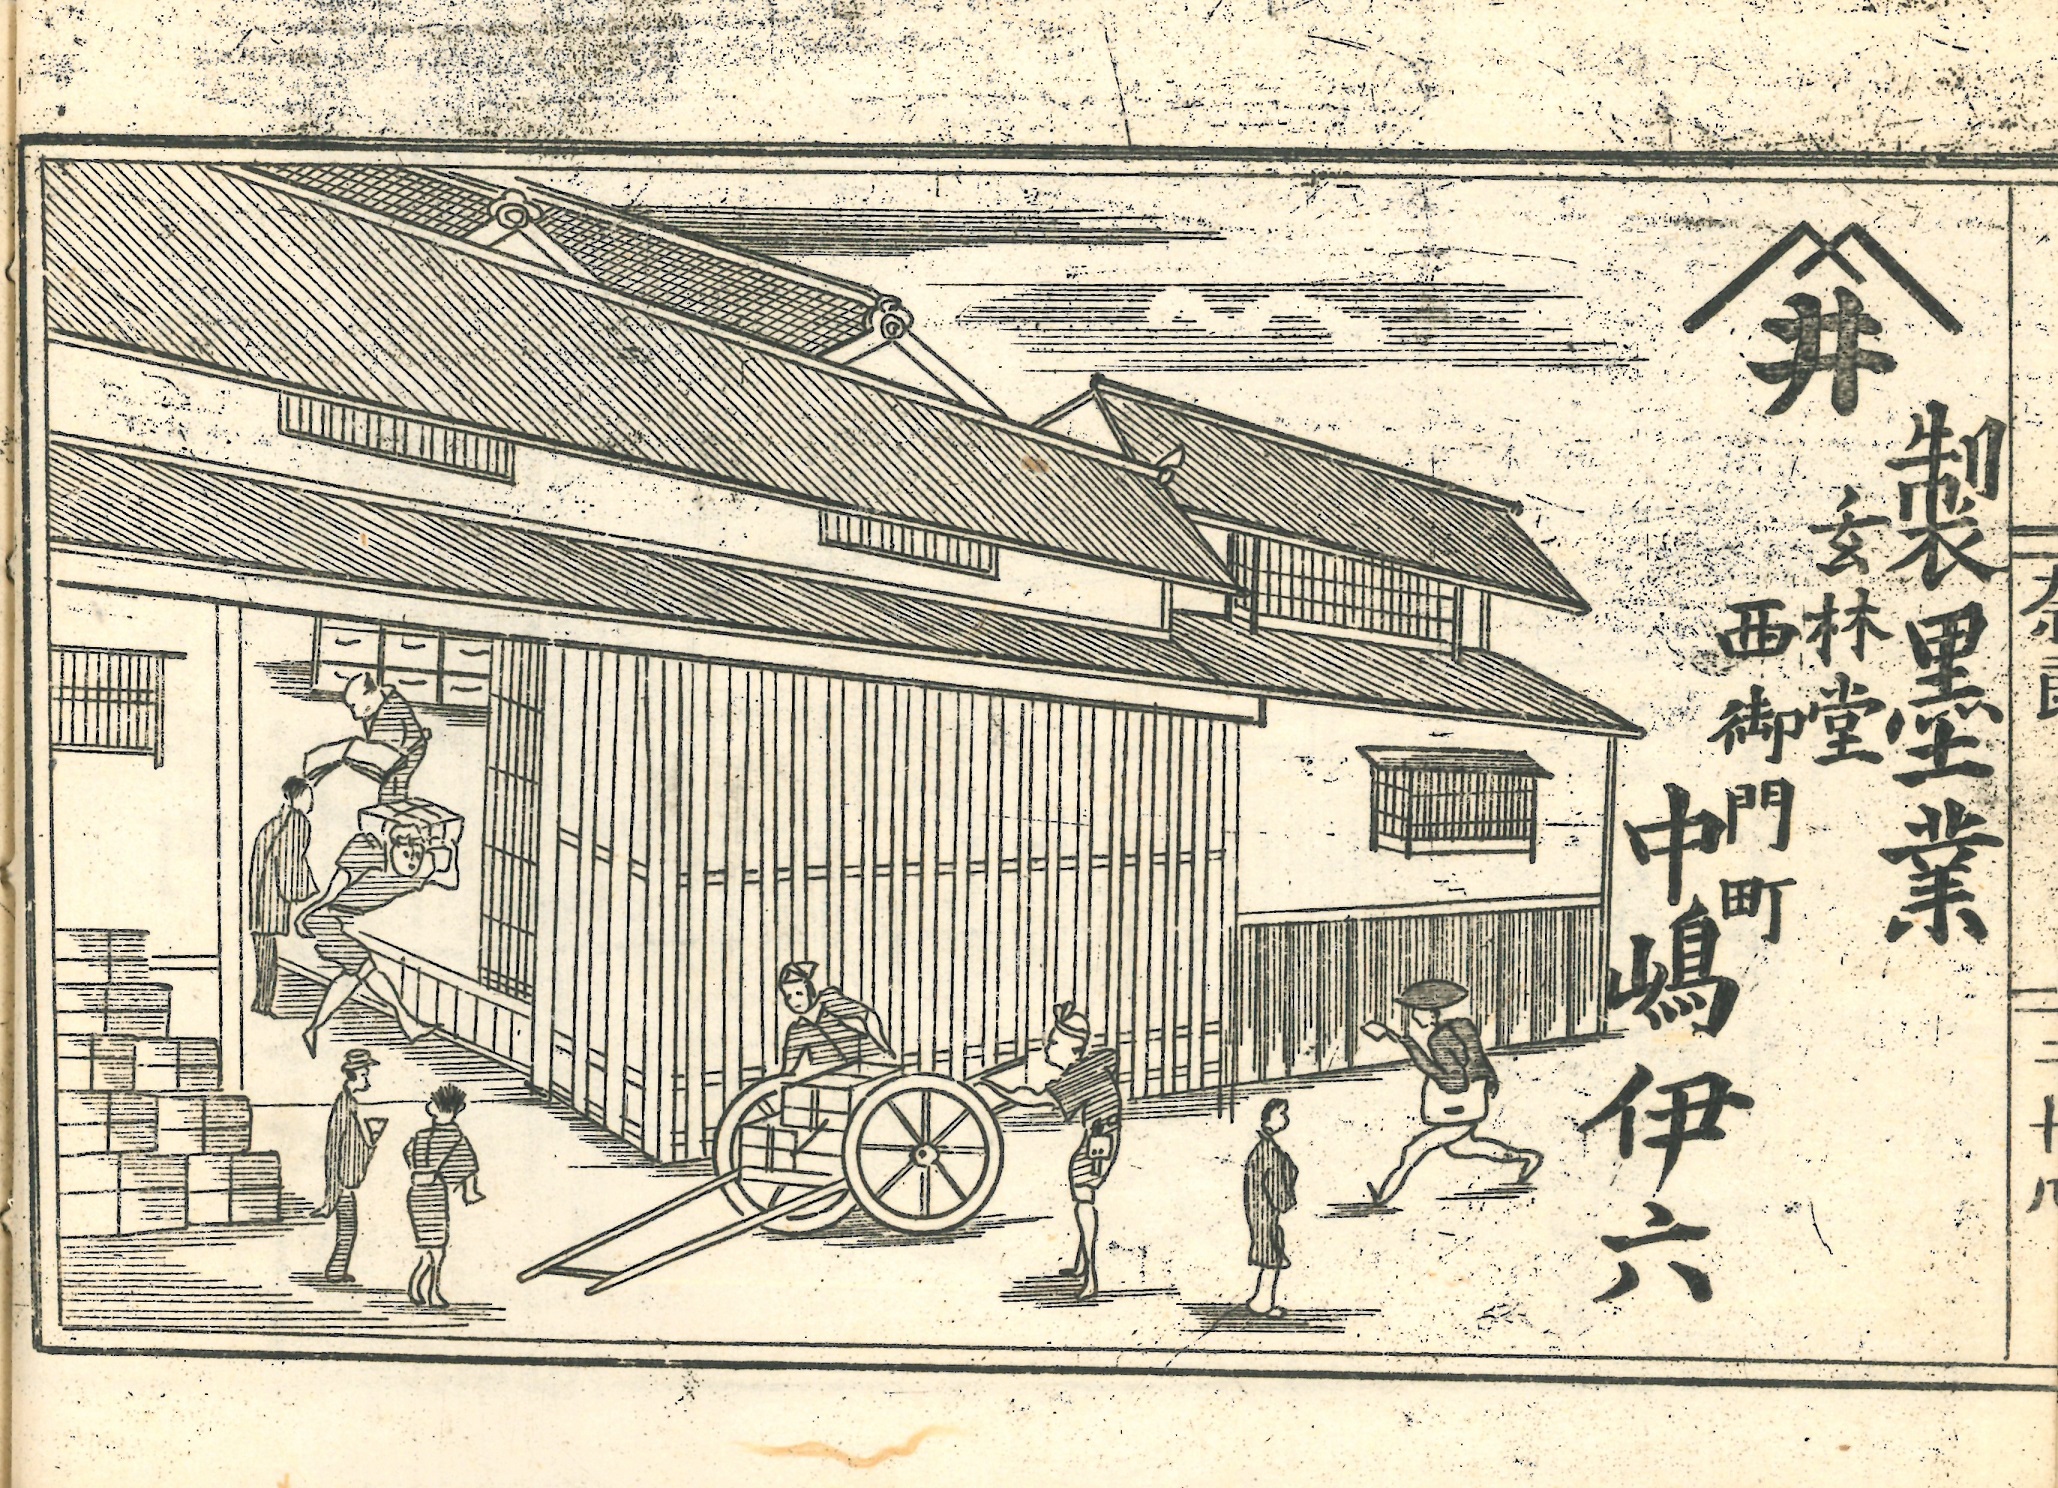 井
製墨業
玄林堂
西御門町
中嶋伊六
二十八